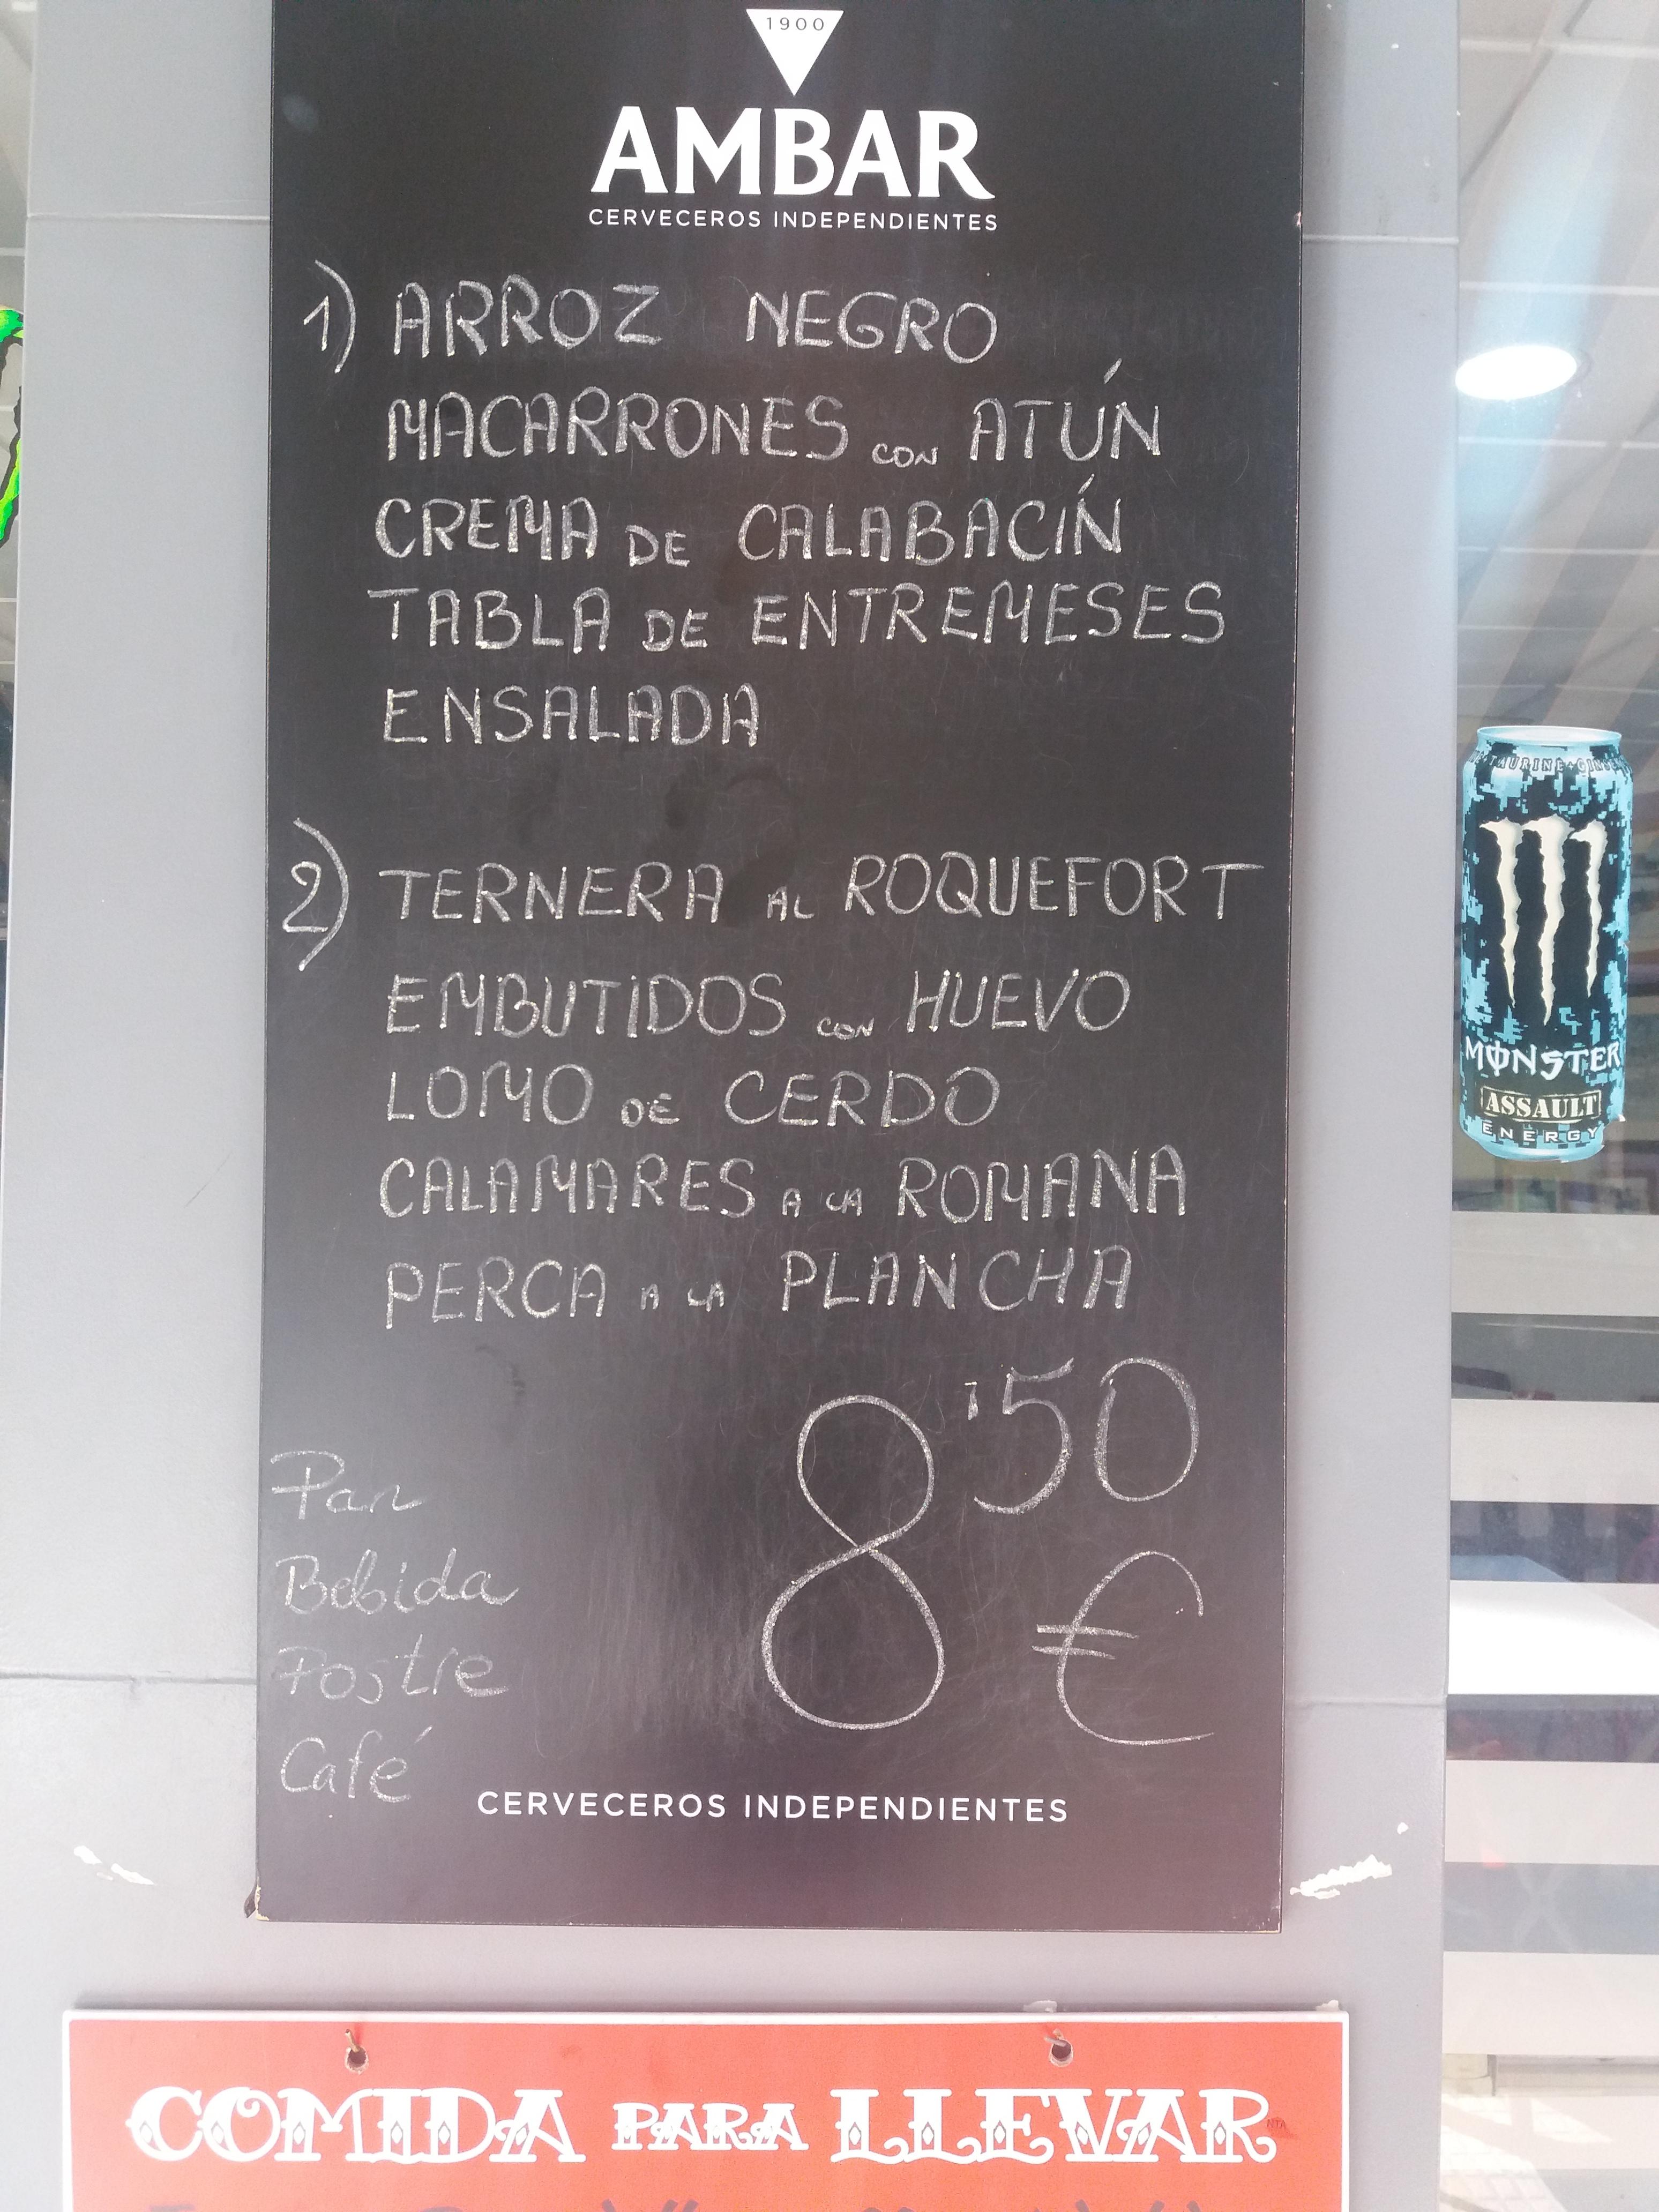 1900
AMBAR
CERVECEROS INDEPENDIENTES
1) ARROZ NEGRO
MACARRONES CON ATÚN
CREMA DE CALABACÍN
TABLA DE ENTREMESES
ENSALADA
2) TERNERA AL ROQUEFORT
EMBUTIDOS CON HUEVO
LOMO DE CERDO
CALAMARES A LA ROMANA
PERCA A LA PLANCHA
8'50 €
Pan
Bebida
Postre
Café
CERVECEROS INDEPENDIENTES
MONSTER
ASSAULT
ENERGY
COMIDA PARA LLEVAR